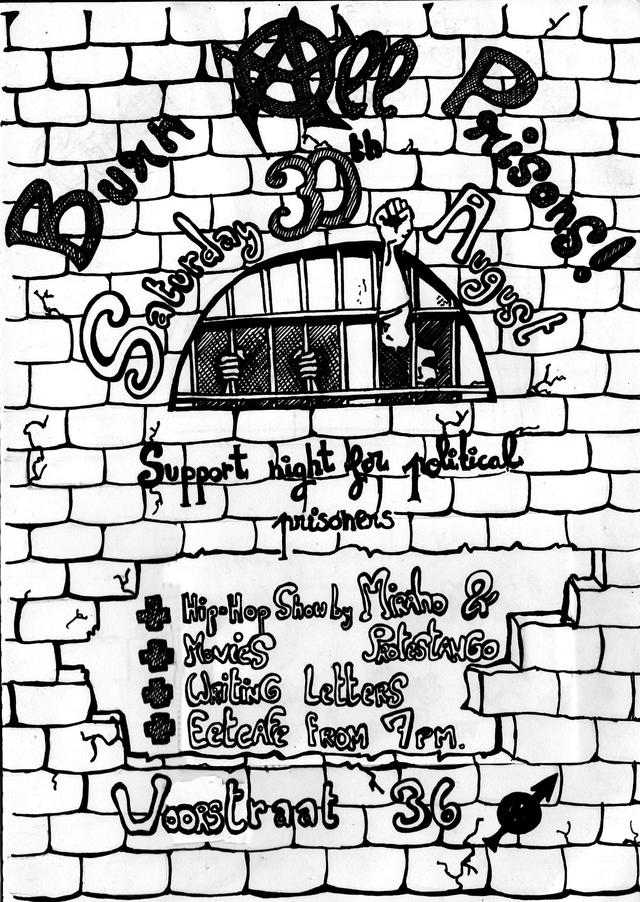 Burn All Prisons!
Saturday 30th August
Support night for political
prisoners
Hip-Hop Show by Miraho &
Movies Protestango
Writing Letters
Eetcafe from 7 pm.
Voorstraat 36